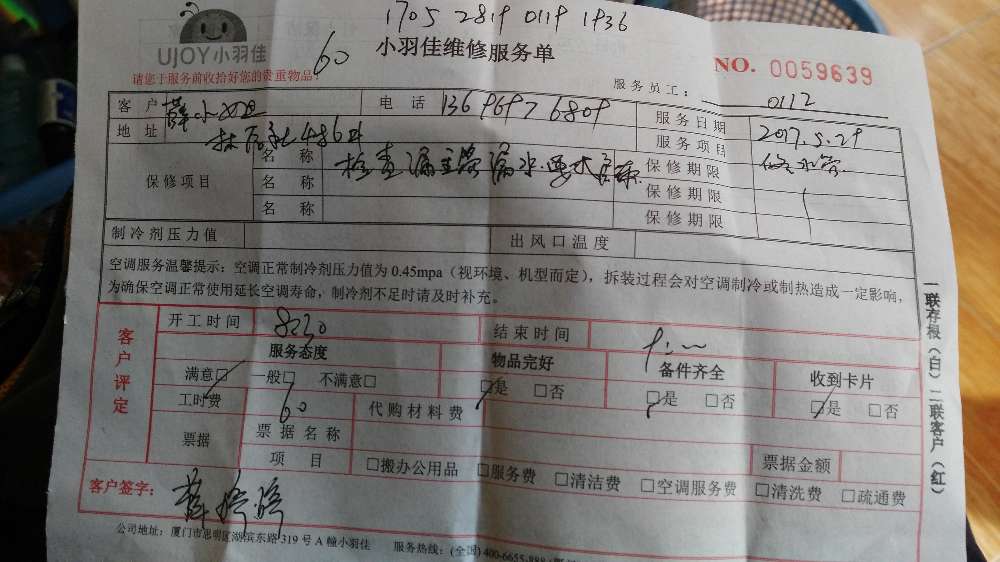 1705 2819 0119 1936
UJOY小羽佳
60
小羽佳维修服务单
NO. 0059639
请您于服务前收拾好您的贵重物品！
服务员工： 0112
客户 薛小姐 电话 13696976809 服务日期 2017.5.29
地址 服务项目 修水管
保修项目 名称 检查漏主管漏水 保修期限
名称 保修期限
名称 保修期限
制冷剂压力值 出风口温度
空调服务温馨提示：空调正常制冷剂压力值为0.45mpa（视环境、机型而定），拆装过程会对空调制冷或制热造成一定影响，
为确保空调正常使用延长空调寿命，制冷剂不足时请及时补充。
一联存根（白）二联客户（红）
客户评定
开工时间 8:30 结束时间
服务态度 物品完好 备件齐全 收到卡片
满意□ 一般□ 不满意□ □是 □否 □是 □否 □是 □否
工时费 60 代购材料费
票据 票据名称
项目 □搬办公用品 □服务费 □清洁费 □空调服务费 □清洗费 □疏通费
票据金额
客户签字： 薛婷婷
公司地址：厦门市思明区湖滨东路319号A幢小羽佳 服务热线：(全国)400-6655-888